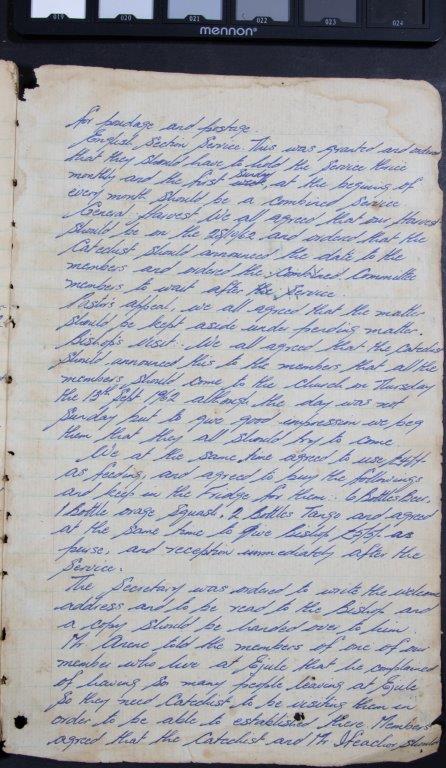 019 020 021 022 023 024
mennon
for poudage and postage.
English Section Service. This was granted and ordered
that they should have to hold the service thrice
monthly and the first Sunday week, at the begining of
every month should be a combined Service
General Harvest We all agreed that our Harvest
should be on the and ordered that the
Catechist should announced the date to the
members and ordered the Combined Committee
members to wait after the Service.
appeal, we all agreed that the matter
should be kept aside under pending matter.
Bishop's Visit: We all agreed that the Catechist
should announced this to the members that all the
members should come to the church on Thursday
the 13th Sept 1962 although the day was not
Sunday but to give good impression we beg
them that they all should try to come.
We at the same time agreed to use
as feeding, and agreed to buy the followings
and keep in the fridge for them: 6 Bottles Beer.
1 Bottle orage Squash, 2 Bottles Tango and agreed
at the same time to give Bishop as
purse, and reception immediately after the
Service.
The Secretary was ordered to write the welcome
address and to be read to the Bishop and
a copy should be handed over to him.
Mr Anene told the members of one of our
member who live at Ejule that he complained
of having so many people leaving at Ejule
So they need Catechist to be visiting them in
order to be able to established there. Members
agreed that the Catechist and Mr should